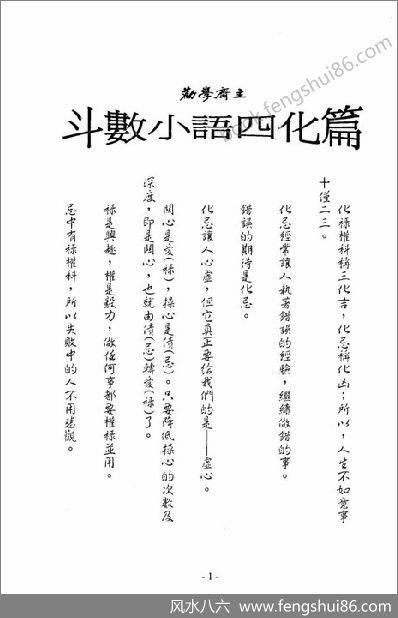 勸學齋主
斗數小語四化篇
化祿權科稱三化吉，化忌稱化凶；所以，人生不如意事
十僅二三。
化忌經常讓人執著錯誤的經驗，繼續做錯的事。
錯誤的期待是化忌。
化忌讓人心虛，但它真正要給我們的是——虛心。
關心是愛(祿)，操心是債(忌)。只要降低操心的次數及
深度，即是關心，也就由債(忌)轉愛(祿)了。
祿是興趣，權是毅力，做任何事都要權祿並用。
忌中有祿權科，所以失敗中的人不用悲觀。
- 1 -
风水八六 - www.fengshui86.com